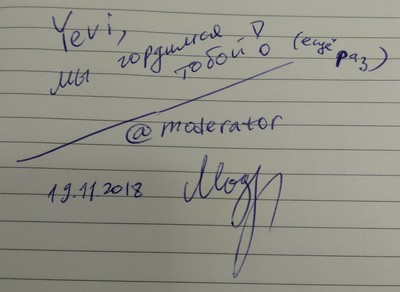 Yevi,
мы гордимся тобой! (ещё раз)
@moderator
19.11.2018 Мод